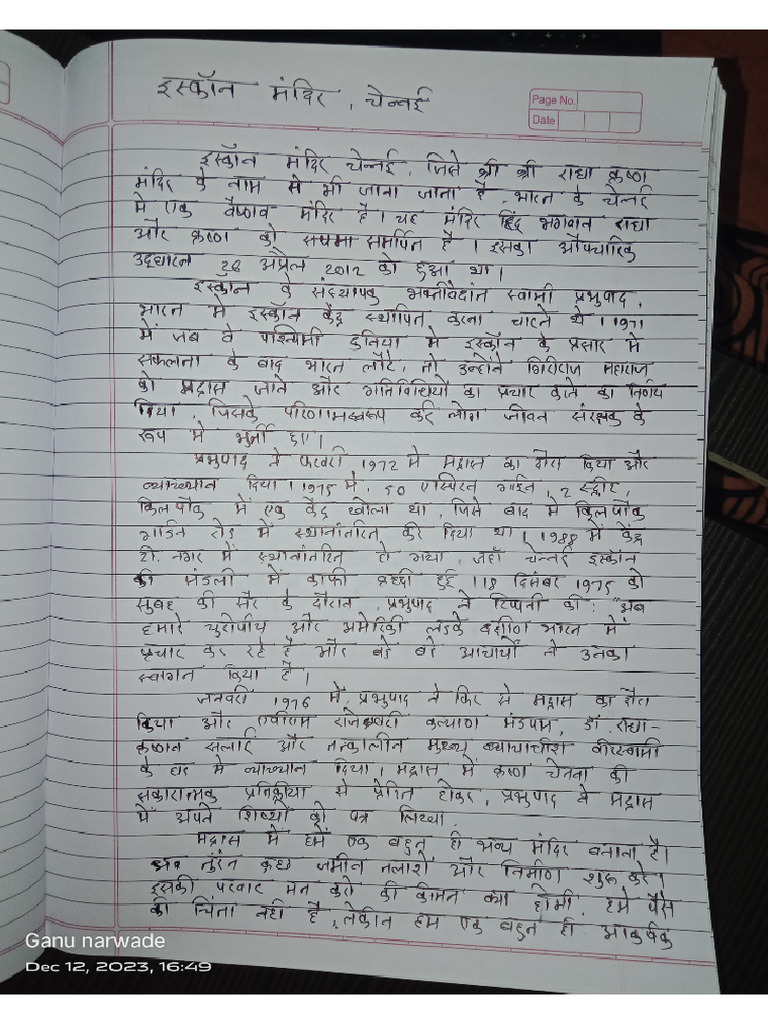 इस्कॉन मंदिर, चेन्नई
Page No.
Date
इस्कॉन मंदिर चेन्नई, जिसे श्री श्री राधा कृष्ण
मंदिर के नाम से भी जाना जाता है, भारत के चेन्नई
मे एक वैष्णव मंदिर है। यह मंदिर हिंदू भगवान राधा
और कृष्ण को समर्पित है। इसका औपचारिक
उद्घाटन 26 अप्रैल 2012 को हुआ था।
इस्कॉन के संस्थापक भक्तिवेदांत स्वामी प्रभुपाद,
भारत मे इस्कॉन केंद्र स्थापित करना चाहते थे। 1971
में जब वे पश्चिमी दुनिया मे इस्कॉन के प्रसार मे
सफलता के बाद भारत लौटे, तो उन्होंने गिरीराज महाराज
को मद्रास जाने और गतिविधियों का प्रचार करने का निर्णय
दिया, जिसके परिणामस्वरूप कई लोग जीवन संरक्षक के
रूप मे भर्ती हुए।
प्रभुपाद ने फरवरी 1972 मे मद्रास का दौरा किया और
व्याख्यान दिया। 1975 मे, 50 एस्पिरन गार्डन, 2 स्ट्रीट,
किलपौक में एक केंद्र खोला था, जिसे बाद मे किलपौक
गार्डन रोड में स्थानांतरित कर दिया था। 1988 में केंद्र
टी. नगर में स्थानांतरित हो गया, जहाँ चेन्नई इस्कॉन
की मंडली में काफी वृद्धी हुई। 18 दिसंबर 1975 को
सुबह की सैर के दौरान, प्रभुपाद ने टिप्पनी की: "अब
हमारे युरोपीय और अमेरिकी लडके दक्षीण भारत में
प्रचार कर रहे है और बडे बडे आचार्यों ने उनका
स्वागत किया है।
जनवरी 1976 में, प्रभुपाद ने फिर से मद्रास का दौरा
किया और एवीएम राजेश्वरी कल्याण मंडपम, डॉ. राधा-
कृष्णन सलाई और तत्कालीन मुख्य न्यायाधीश वीरस्वामी
के घर मे व्याख्यान दिया। मद्रास में कृष्ण चेतना की
सकारात्मक प्रतिक्रीया से प्रेरित होकर, प्रभुपाद ने मद्रास
में अपने शिष्यों को पत्र लिखा.
मद्रास में हमें एक बहुत ही भव्य मंदिर बनाना है।
अब तुरंत कुछ जमीन तलाशे और निर्माण शुरू करे।
इसकी परवाह मत करो की कीमत क्या होगी, हमे पैसे
की चिंता नही है, लेकीन हम एक बहुत ही आकर्षक
Ganu narwade
Dec 12, 2023, 16:49